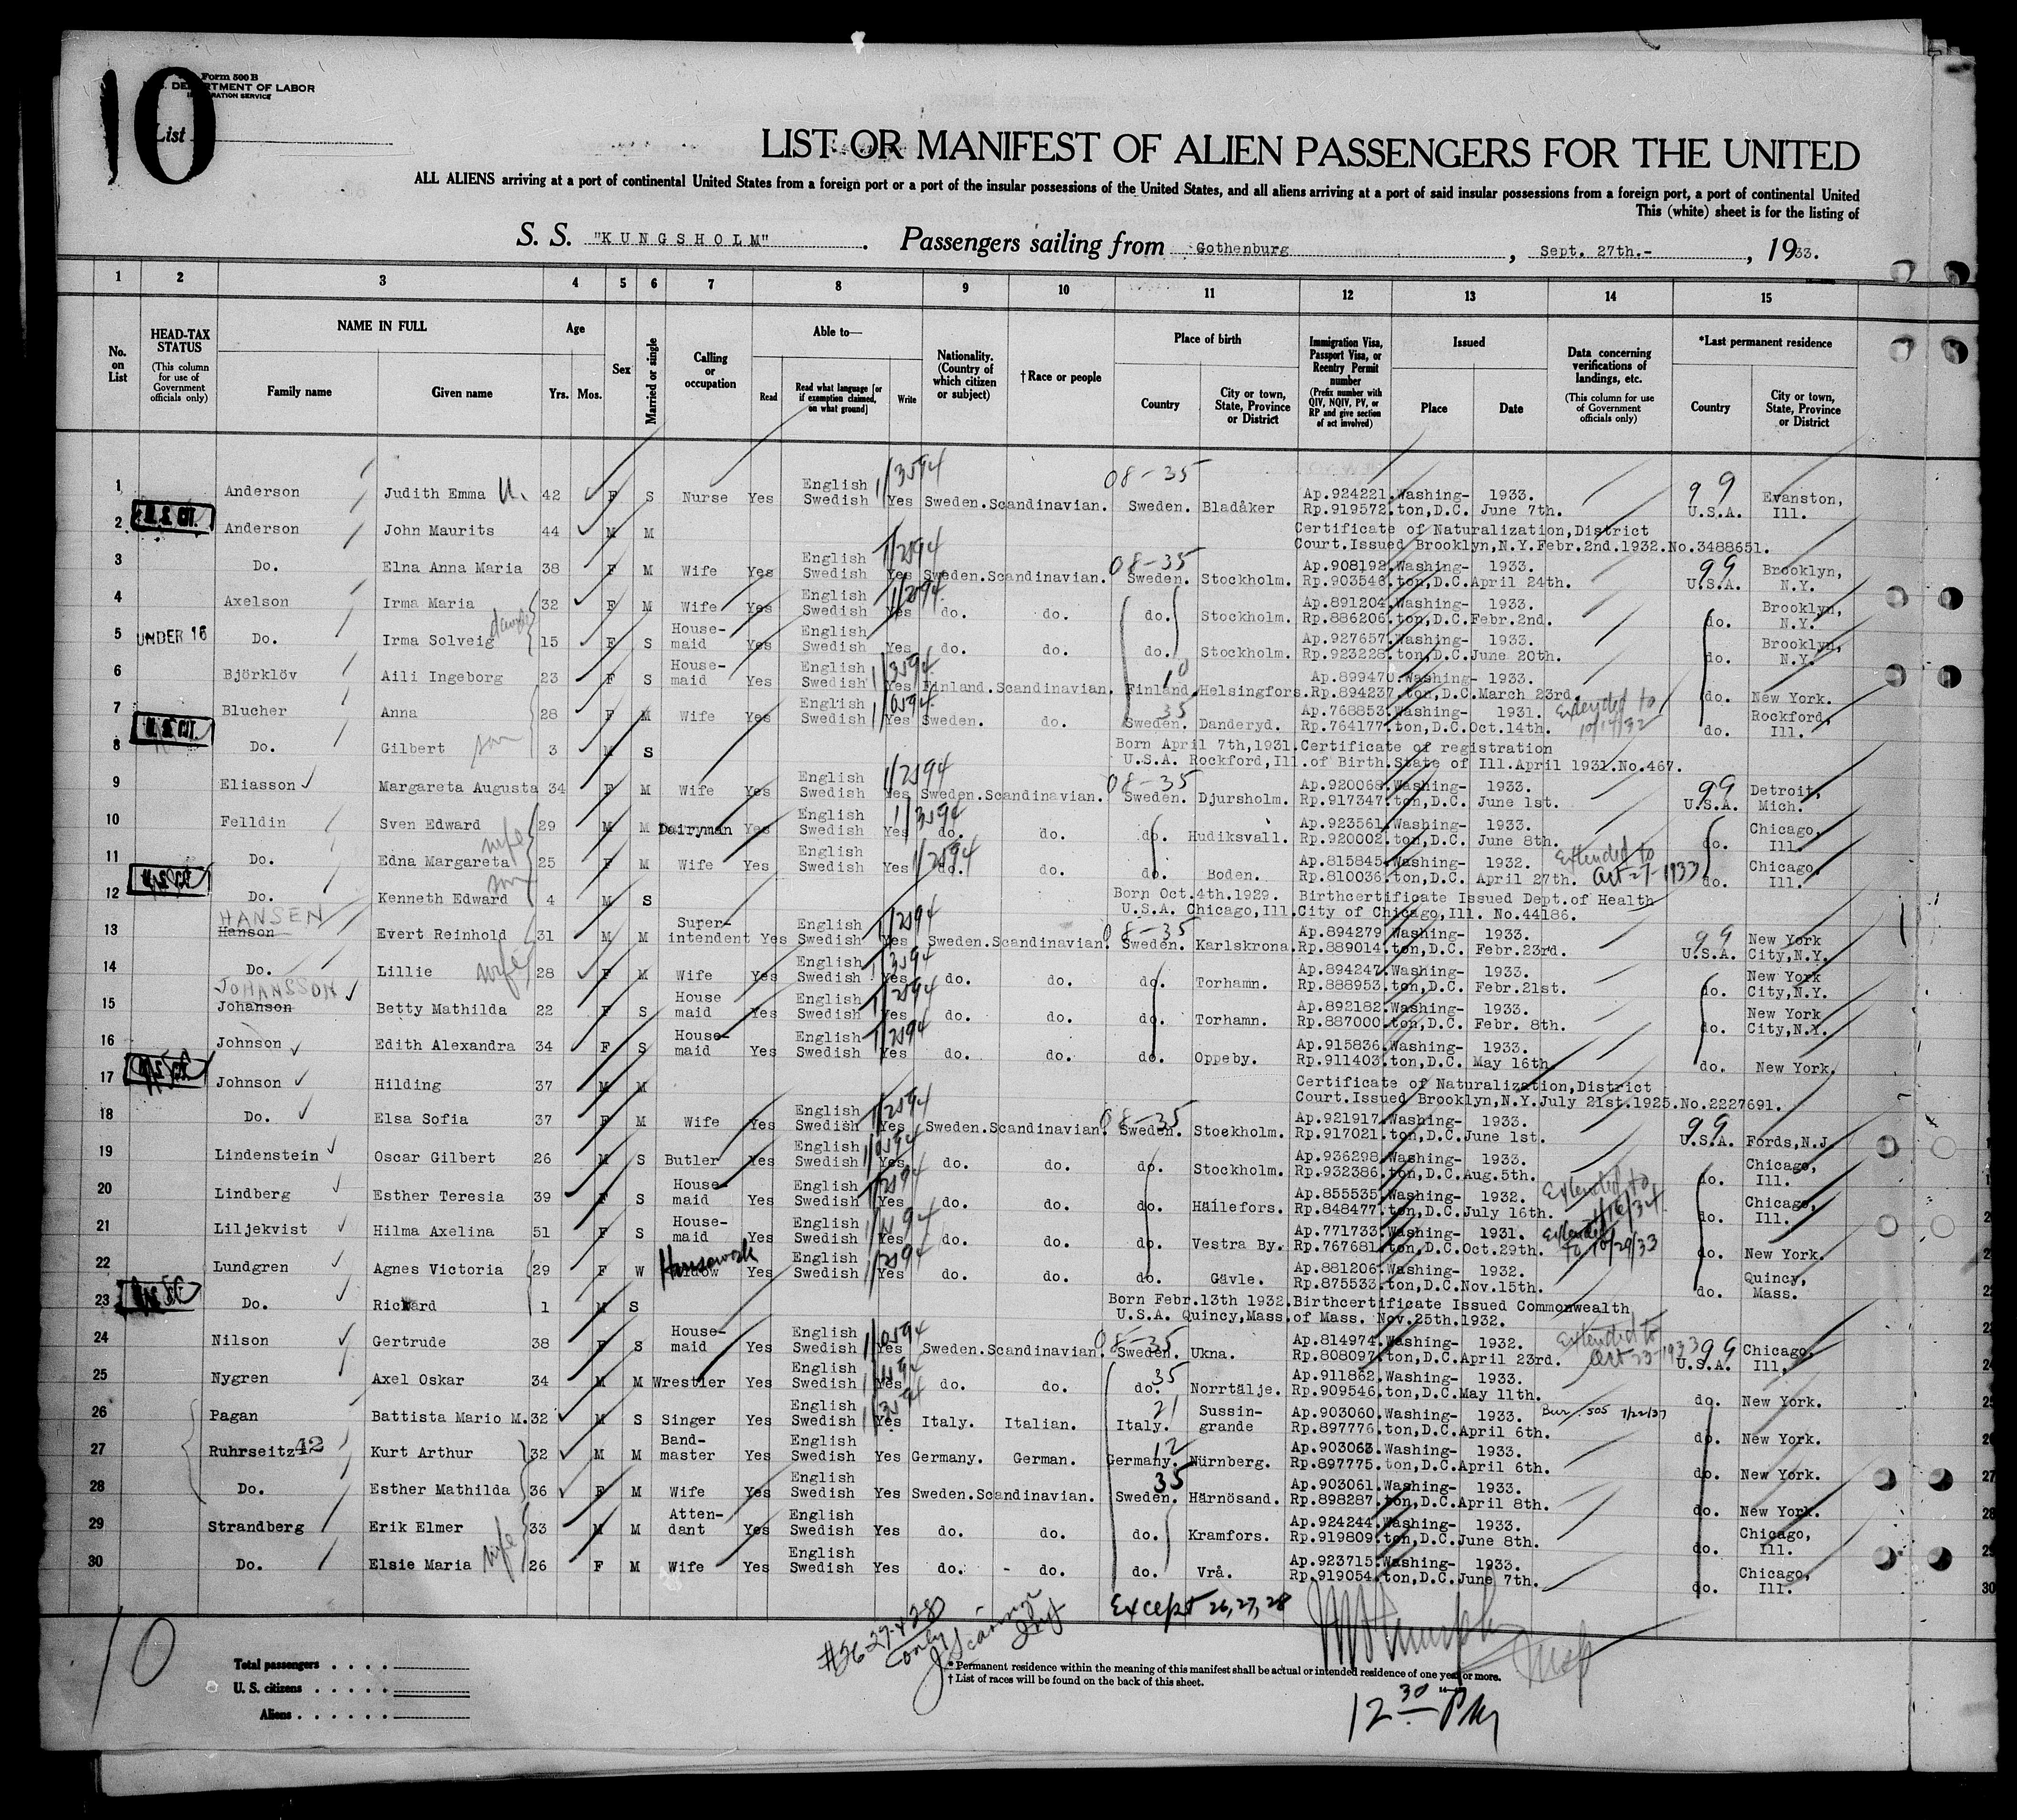 10
Form 500 B
DEPARTMENT OF LABOR
IMMIGRATION SERVICE
List
LIST OR MANIFEST OF ALIEN PASSENGERS FOR THE UNITED
ALL ALIENS arriving at a port of continental United States from a foreign port or a port of the insular possessions of the United States, and all aliens arriving at a port of said insular possessions from a foreign port, a port of continental United
This (white) sheet is for the listing of
S. S. "KUNGSHOLM" . Passengers sailing from Gothenburg , Sept. 27th.- , 1933.
1 2 3 4 5 6 7 8 9 10 11 12 13 14 15
No. on List
HEAD-TAX STATUS (This column for use of Government officials only)
NAME IN FULL Family name Given name
Age Yrs. Mos.
Sex
Married or single
Calling or occupation
Able to— Read Read what language [or if exemption claimed, on what ground] Write
Nationality. (Country of which citizen or subject)
† Race or people
Place of birth Country City or town, State, Province or District
Immigration Visa, Passport Visa, or Reentry Permit number (Prefix number with QIV, NQIV, PV, or RP and give section of act involved)
Issued Place Date
Data concerning verifications of landings, etc. (This column for use of Government officials only)
*Last permanent residence Country City or town, State, Province or District
1 Anderson Judith Emma 42 F S Nurse Yes English Swedish Yes Sweden. Scandinavian. 08-35 Sweden. Bladåker Ap.924221. Rp.919572. Washington,D.C. 1933. June 7th. 99 U.S.A. Evanston, Ill.
2 U.S. CIT. Anderson John Maurits 44 M M Certificate of Naturalization,District Court.Issued Brooklyn,N.Y.Febr.2nd.1932.No.3488651.
3 Do. Elna Anna Maria 38 F M Wife Yes English Swedish Yes Sweden. Scandinavian. 08-35 Sweden. Stockholm. Ap.908192. Rp.903546. Washington,D.C. 1933. April 24th. 99 U.S.A. Brooklyn, N.Y.
4 Axelson Irma Maria 32 F M Wife Yes English Swedish Yes do. do. do. Stockholm. Ap.891204. Rp.886206. Washington,D.C. 1933. Febr.2nd. do. Brooklyn, N.Y.
5 UNDER 16 Do. Irma Solveig 15 F S Housemaid Yes English Swedish Yes do. do. do. Stockholm. Ap.927657. Rp.923228. Washington,D.C. 1933. June 20th. do. Brooklyn, N.Y.
6 Björklöv Aili Ingeborg 23 F S Housemaid Yes English Swedish Yes Finland. Scandinavian. Finland. Helsingfors. Ap.899470. Rp.894237. Washington,D.C. 1933. March 23rd. do. New York.
7 Blucher Anna 28 F M Wife Yes English Swedish Yes Sweden. do. 35 Sweden. Danderyd. Ap.768853. Rp.764177. Washington,D.C. 1931. Oct.14th. Extended to 10/14/32 do. Rockford, Ill.
8 U.S. CIT. Do. Gilbert son 3 M S Born April 7th,1931. U.S.A. Rockford,Ill. Certificate of registration of Birth.State of Ill.April 1931.No.467.
9 Eliasson Margareta Augusta 34 F M Wife Yes English Swedish Yes Sweden. Scandinavian. 08-35 Sweden. Djursholm. Ap.920068. Rp.917347. Washington,D.C. 1933. June 1st. 99 U.S.A. Detroit, Mich.
10 Felldin Sven Edward 29 M M Dairyman Yes English Swedish Yes do. do. do. Hudiksvall. Ap.923561. Rp.920002. Washington,D.C. 1933. June 8th. do. Chicago, Ill.
11 Do. Edna Margareta wife 25 F M Wife Yes English Swedish Yes do. do. do. Boden. Ap.815845. Rp.810036. Washington,D.C. 1932. April 27th. Extended to Oct-27-1933 do. Chicago, Ill.
12 Do. Kenneth Edward son 4 M S Born Oct.4th.1929. U.S.A. Chicago,Ill. Birthcertificate Issued Dept.of Health City of Chicago,Ill. No.44186.
13 HANSEN Hanson Evert Reinhold 31 M M Superintendent Yes English Swedish Yes Sweden. Scandinavian. 08-35 Sweden. Karlskrona. Ap.894279. Rp.889014. Washington,D.C. 1933. Febr.23rd. 99 U.S.A. New York City,N.Y.
14 Do. Lillie wife 28 F M Wife Yes English Swedish Yes do. do. do. Torhamn. Ap.894247. Rp.888953. Washington,D.C. 1933. Febr.21st. do. New York City,N.Y.
15 JOHANSSON Johanson Betty Mathilda 22 F S House maid Yes English Swedish Yes do. do. do. Torhamn. Ap.892182. Rp.887000. Washington,D.C. 1933. Febr. 8th. do. New York City,N.Y.
16 Johnson Edith Alexandra 34 F S Housemaid Yes English Swedish Yes do. do. do. Oppeby. Ap.915836. Rp.911403. Washington,D.C. 1933. May 16th. do. New York.
17 Johnson Hilding 37 M M Certificate of Naturalization,District Court.Issued Brooklyn,N.Y.July 21st.1925.No.2227691.
18 Do. Elsa Sofia 37 F M Wife Yes English Swedish Yes Sweden. Scandinavian. 08-35 Sweden. Stoekholm. Ap.921917. Rp.917021. Washington,D.C. 1933. June 1st. 99 U.S.A. Fords,N.J
19 Lindenstein Oscar Gilbert 26 M S Butler Yes English Swedish Yes do. do. do. Stockholm. Ap.936298. Rp.932386. Washington,D.C. 1933. Aug.5th. do. Chicago, Ill.
20 Lindberg Esther Teresia 39 F S Housemaid Yes English Swedish Yes do. do. do. Häilefors. Ap.855535. Rp.848477. Washington,D.C. 1932. July 16th. Extended to do. Chicago, Ill.
21 Liljekvist Hilma Axelina 51 F S Housemaid Yes English Swedish Yes do. do. do. Vestra By. Ap.771733. Rp.767681. Washington,D.C. 1931. Oct.29th. Extended to 10/29/33 do. New York.
22 Lundgren Agnes Victoria 29 F W Housework Widow Yes English Swedish Yes do. do. do. Gävle. Ap.881206. Rp.875533. Washington,D.C. 1932. Nov.15th. do. Quincy, Mass.
23 Do. Richard 1 M S Born Febr.13th 1932. U.S.A. Quincy,Mass. Birthcertificate Issued Commonwealth of Mass. Nov.25th.1932.
24 Nilson Gertrude 38 F S Housemaid Yes English Swedish Yes Sweden. Scandinavian. 08-35 Sweden. Ukna. Ap.814974. Rp.808097. Washington,D.C. 1932. April 23rd. Extended to Oct 23-1933 99 U.S.A. Chicago, Ill.
25 Nygren Axel Oskar 34 M M Wrestler Yes English Swedish Yes do. do. 35 do. Norrtälje. Ap.911862. Rp.909546. Washington,D.C. 1933. May 11th. do. New York.
26 Pagan Battista Mario M. 32 M S Singer Yes English Swedish Yes Italy. Italian. 21 Italy. Sussingrande Ap.903060. Rp.897776. Washington,D.C. 1933. April 6th. Bur. 505 7/22/37 do. New York.
27 Ruhrseitz 42 Kurt Arthur 32 M M Bandmaster Yes English Swedish Yes Germany. German. 12 Germany. Nürnberg. Ap.903063. Rp.897775. Washington,D.C. 1933. April 6th. do. New York.
28 Do. Esther Mathilda 36 F M Wife Yes English Swedish Yes Sweden. Scandinavian. 35 Sweden. Härnösand. Ap.903061. Rp.898287. Washington,D.C. 1933. April 8th. do. New York.
29 Strandberg Erik Elmer 33 M M Attendant Yes English Swedish Yes do. do. do. Kramfors. Ap.924244. Rp.919809. Washington,D.C. 1933. June 8th. do. Chicago, Ill.
30 Do. Elsie Maria wife 26 F M Wife Yes English Swedish Yes do. do. do. Vrå. Ap.923715. Rp.919054. Washington,D.C. 1933. June 7th. do. Chicago, Ill.
Except 26,27,28
#26-27+28 only
10
Total passengers
U. S. citizens
Aliens
* Permanent residence within the meaning of this manifest shall be actual or intended residence of one year or more.
† List of races will be found on the back of this sheet.
12 30 PM